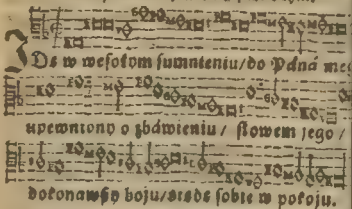 Jde w wesołym sumnieniu/do Pána meg
upewniony o zbáwieniu/ słowem jego/
dokonawszy boju/ siede sobie w pokoju.